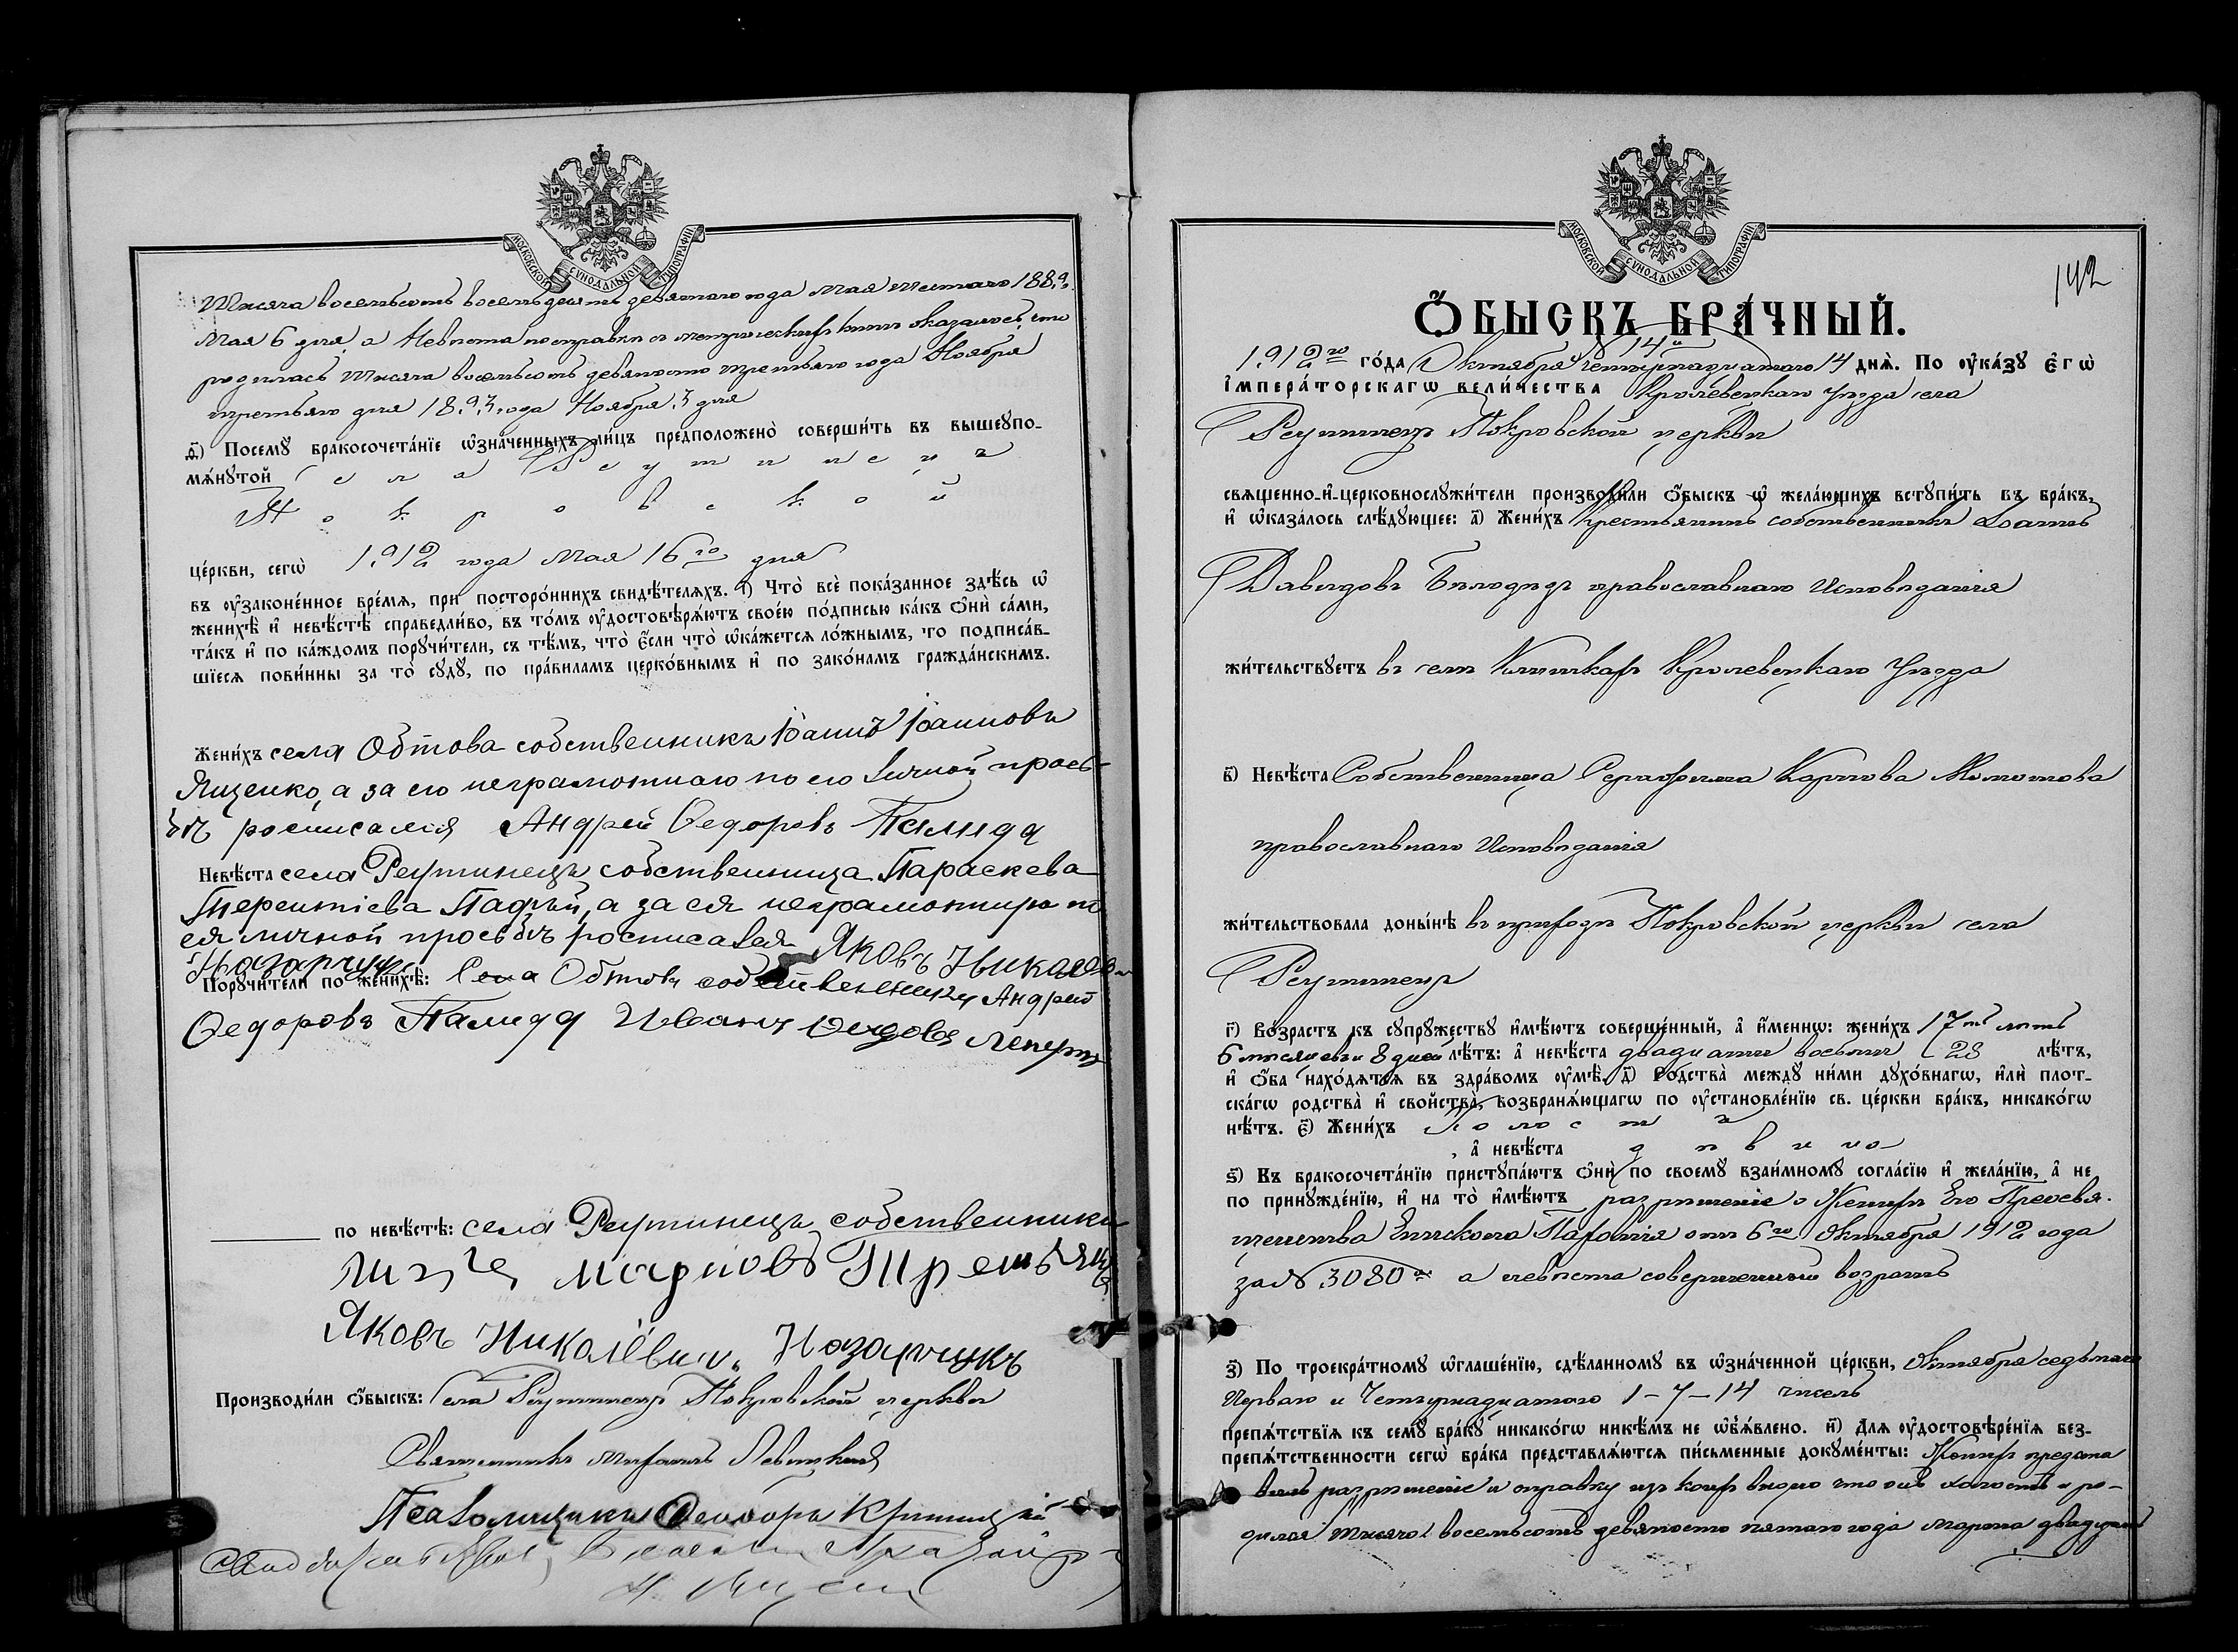 МОСКОВСКОЙ СѴНОДАЛЬНОЙ ТИПОГРАФІИ
Тысяча восемьсотъ восемьдесятъ девятаго года Мая шестаго 1889.
Мая 6 дня, а Невѣста по справки съ метрическихъ книгъ оказалось, что
родилась тысяча восемьсотъ девяносто третьяго года Ноября
третьяго дня 1893 года Ноября 3 дня
д҃) Посемꙋ бракосочета́нїе ѡ҆зна́ченныхъ ли́цъ предположено̀ соверши́ть въ вышеꙋпо-
мѧ́нꙋтой села Реутинецъ
Покровской
це́ркви, сегѡ̀ 1912 года Мая 16го дня
въ ᲂу҆законе́нное вре́мѧ, при посторо́ннихъ свидѣ́телѧхъ. і҃) Что̀ всѐ пока́занное здѣ́сь ѡ҆
женихѣ̀ и҆ невѣ́стѣ справедли́во, въ то́мъ ᲂу҆достовѣрѧ́ютъ свое́ю по́дписью ка́къ ѻ҆нѝ са́ми,
та́къ и҆ по ка́ждомъ порꙋчи́тели, съ тѣ́мъ, что̀ є҆́сли что̀ ѡ҆ка́жетсѧ ло́жнымъ, то подписа́в-
шїесѧ пови́нны за то̀ сꙋдꙋ̀, по пра́виламъ церко́внымъ и҆ по зако́намъ гражда́нскимъ.
Жени́хъ села Обтова собственникъ Іоаннъ Іоанновъ
Яценко, а за его неграмотнаго по его личной прось-
бѣ росписался Андрей Ѳедоровъ Палида
Невѣ́ста села Реутинецъ собственница Параскева
Терентіева Падій, а за ея неграмотную по
ея личной просьбѣ росписался Яковъ Никалев
Назарчукъ
Порꙋчи́тели по женихѣ̀: Села Обтова собственники Андрей
Ѳедоровъ Палида Иванъ
по невѣ́стѣ: села Реутинецъ собственники
Марковъ Третьяк
Яковъ Николёвич. Назарчукъ
Производи́ли ѻ҆́быскъ: Села Реутинецъ Покровской церкви
Священникъ Митрофанъ Левитскій
Псаломщикъ Ѳеодоръ Криницкій
МОСКОВСКОЙ СѴНОДАЛЬНОЙ ТИПОГРАФІИ
142
Ѻ҆́БЫСКЪ БРА́ЧНЫЙ.
14го
1912го го́да Октября четырнадцатаго 14 днѧ̀. По ᲂу҆ка́зꙋ є҆гѡ̀
і҆мпера́торскагѡ вели́чества Кролевецкаго уѣзда села
Реутинецъ Покровской церкви
свѧщенно-и҆-церковнослꙋжи́тели производи́ли ѻ҆́быскъ ѡ҆ жела́ющихъ встꙋпи́ть въ бра́къ,
и҆ ѡ҆каза́лось слѣ́дꙋющее: а҃) Жени́хъ крестьянинъ собственникъ Іоаннъ
Давидовъ Білодѣдъ православнаго исповѣданія
жи́тельствꙋетъ въ селѣ Клишкахъ Кролевецкаго уѣзда
в҃) Невѣ́ста Собственница Серафима Карпова
православнаго исповѣданія
жи́тельствовала доны́нѣ въ приходѣ Покровской церкви села
Реутинецъ
г҃) Во́зрастъ къ сꙋпрꙋ́жествꙋ и҆мѣ́ютъ соверше́нный, а҆ и҆́менно: жени́хъ 17ть лѣтъ
6 мѣсяцевъ и 8 дней лѣ́тъ: а҆ невѣ́ста двадцати восьми 28 лѣ́тъ,
и҆ ѻ҆́ба нахо́дѧтсѧ въ здра́вомъ ᲂу҆мѣ̀. д҃) Родства̀ междꙋ̀ ни́ми дꙋхо́внагѡ, и҆лѝ плот-
ска́гѡ родства̀ и҆ свойства̀, возбранѧ́ющагѡ по ᲂу҆становле́нїю св. це́ркви бра́къ, никако́гѡ
нѣ́тъ. є҃) Жени́хъ холостъ
, а҆ невѣ́ста дѣвица
ѕ҃) Въ бракосочета́нїю пристꙋпа́ютъ ѻ҆нѝ по своемꙋ̀ взаи́мномꙋ согла́сїю и҆ жела́нїю, а҆ не
по принꙋжде́нїю, и҆ на то̀ и҆мѣ́ютъ разрѣшеніе о Женихѣ Его Преосвя-
щенства Епископа Пафнотія отъ 6го Октября 1912 года
за № 3080 а невѣста совершенный возрастъ
з҃) По троекра́тномꙋ ѡ҆глаше́нїю, сдѣ́ланномꙋ въ ѡ҆зна́ченной це́ркви, Октября седьмаго
Перваго и Четырнадцатаго 1-7-14 чиселъ
препѧ́тствїѧ къ семꙋ̀ бра́кꙋ никако́гѡ никѣ́мъ не ѡ҆б̾ѧ́влено. и҃) Длѧ ᲂу҆достовѣре́нїѧ без-
препѧ́тственности сегѡ̀ бра́ка представлѧ́ютсѧ пи́сьменные докꙋме́нты: Женихъ предста
вилъ разрѣшеніе и справку изъ коихъ видно что онъ холостъ и ро-
дился тысяча восемьсотъ девяносто пятаго года Марта двадцать